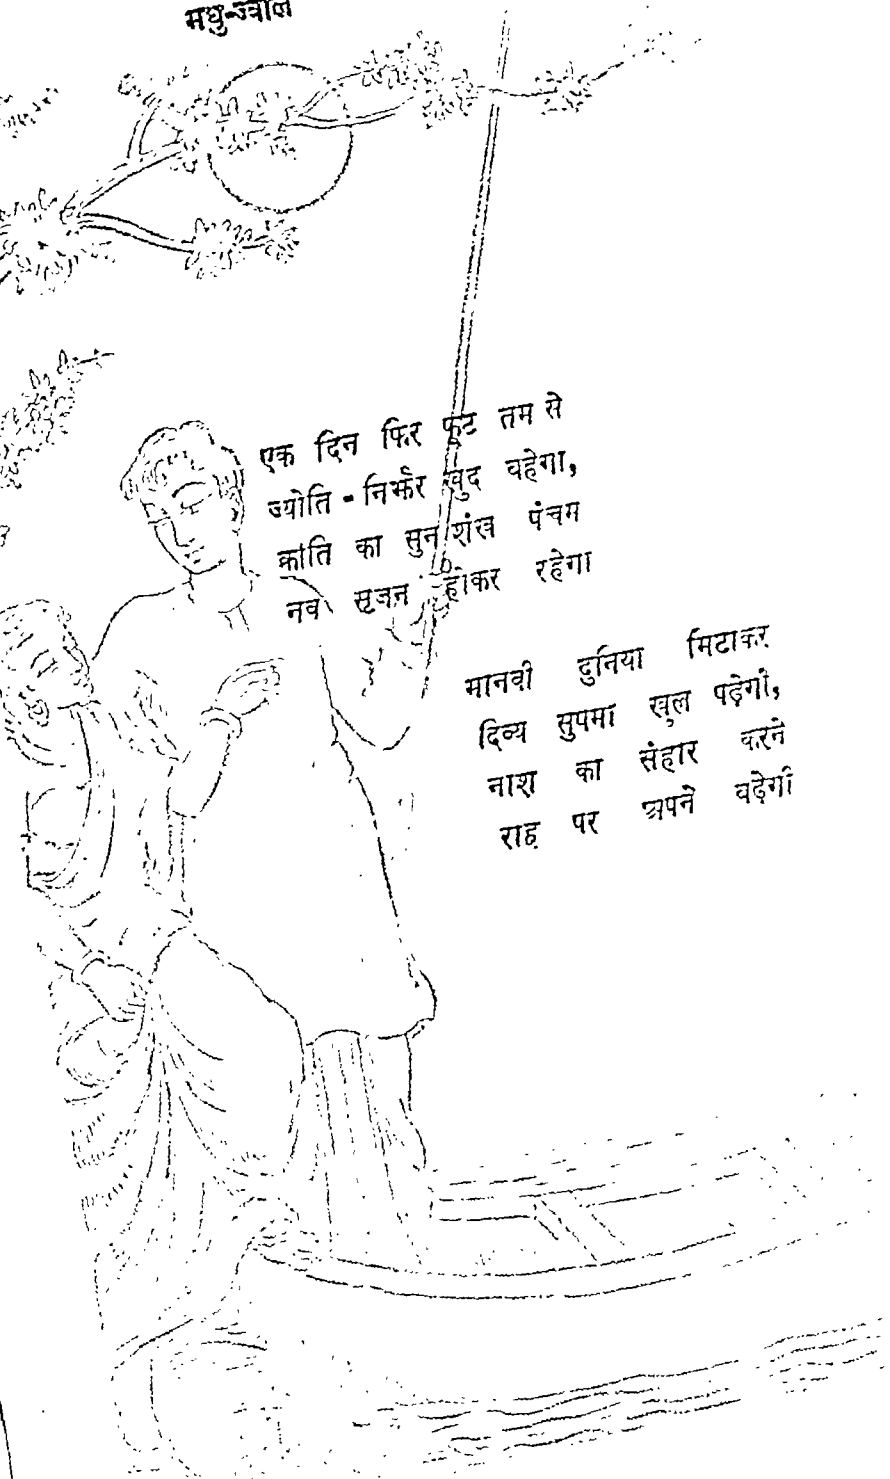 मधु-ज्वाल
एक दिन फिर फूट तम से
ज्योति - निर्झर खुद वहेगा,
क्रांति का सुन शंख पंचम
नव सृजन होकर रहेगा
मानवी दुनिया मिटाकर
दिव्य सुषमा खुल पढ़ेगी,
नाश का संहार करने
राह पर अपने वढ़ेगी